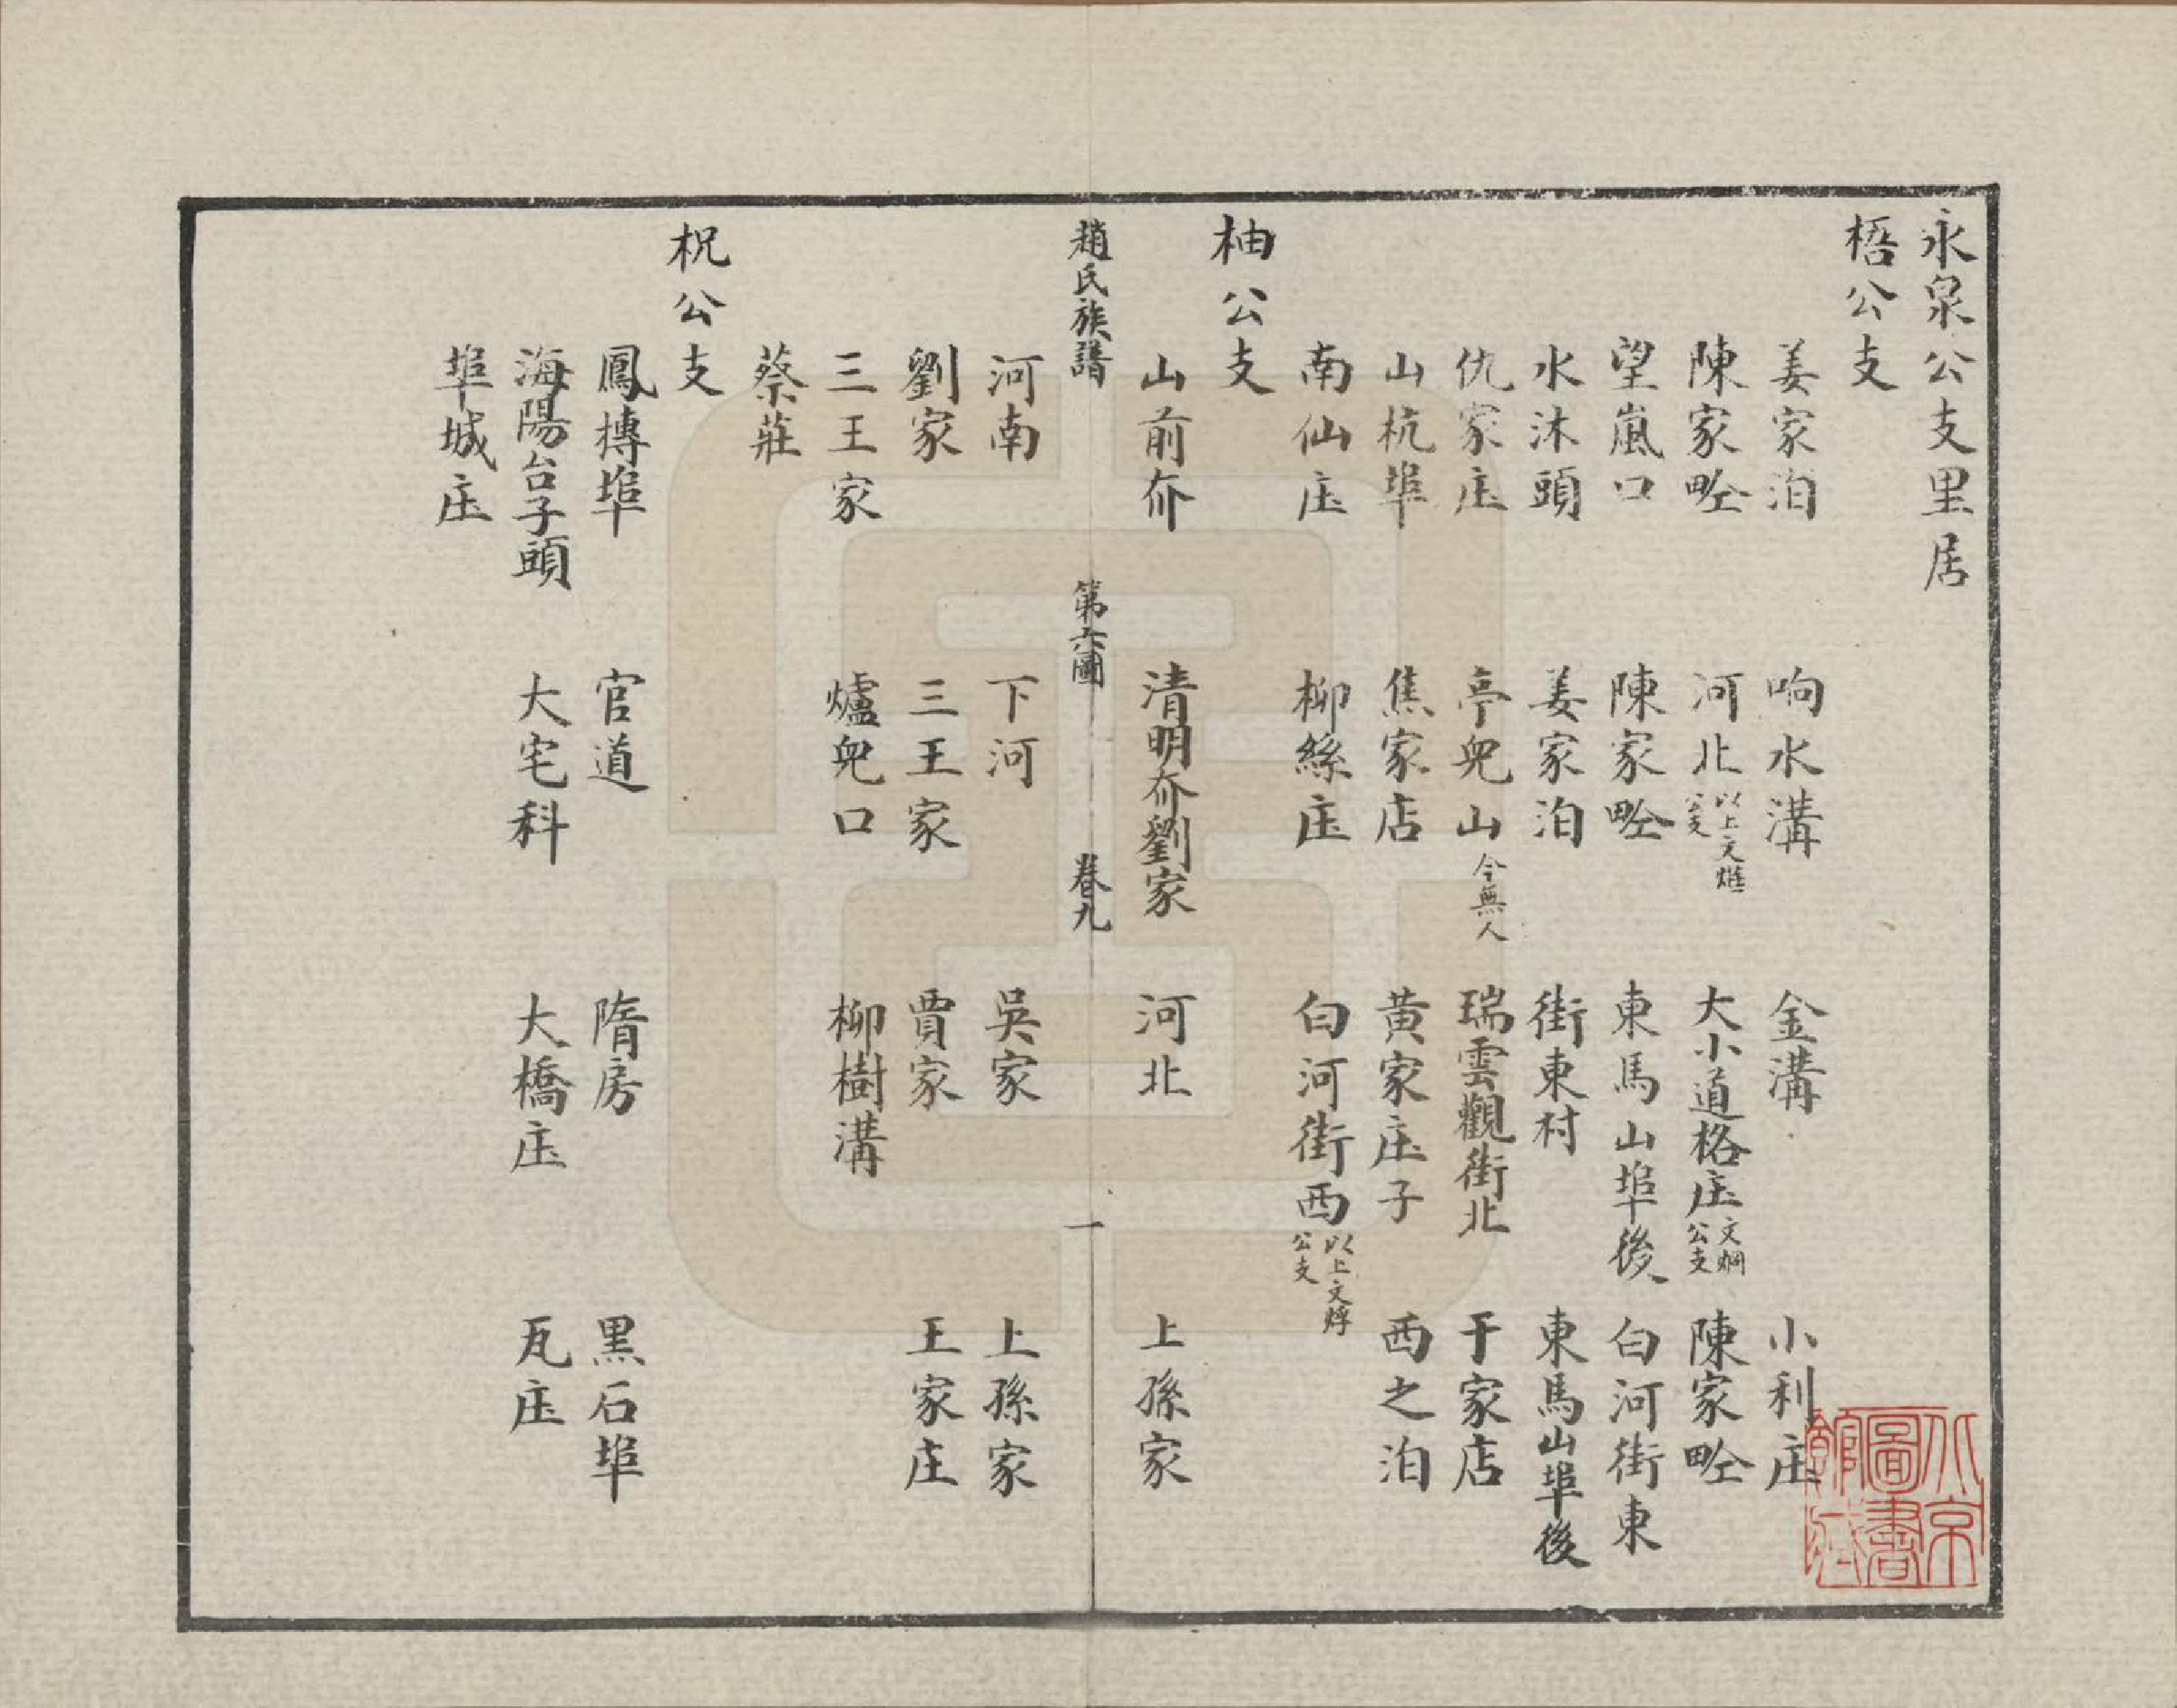 永泉公支里居
梧公支
姜家泊 响水溝 金溝 小利庄
陳家畛 河北以上文煃公支 大小道格庄文炯公支 陳家畛
望嵐口 陳家畛 東馬山埠後 白河街東
水沐頭 姜家泊 街東村 東馬山埠後
仇家庄 亭兒山今無人 瑞雲觀街北 于家店
山杭埠 焦家店 黃家庄子 西之泊
南仙庄 柳絲庄 白河街西以上文烰公支
柚公支
山前夼 清明夼劉家 河北 上孫家
趙氏族譜 第六圖 卷九 一
河南 下河 吳家 上孫家
劉家 三王家 賈家 王家庄
三王家 爐兒口 柳樹溝
蔡莊
柷公支
鳳摶埠 官道 隋房 黑石埠
海陽台子頭 大宅科 大橋庄 瓦庄
埠城庄
北京圖書館藏